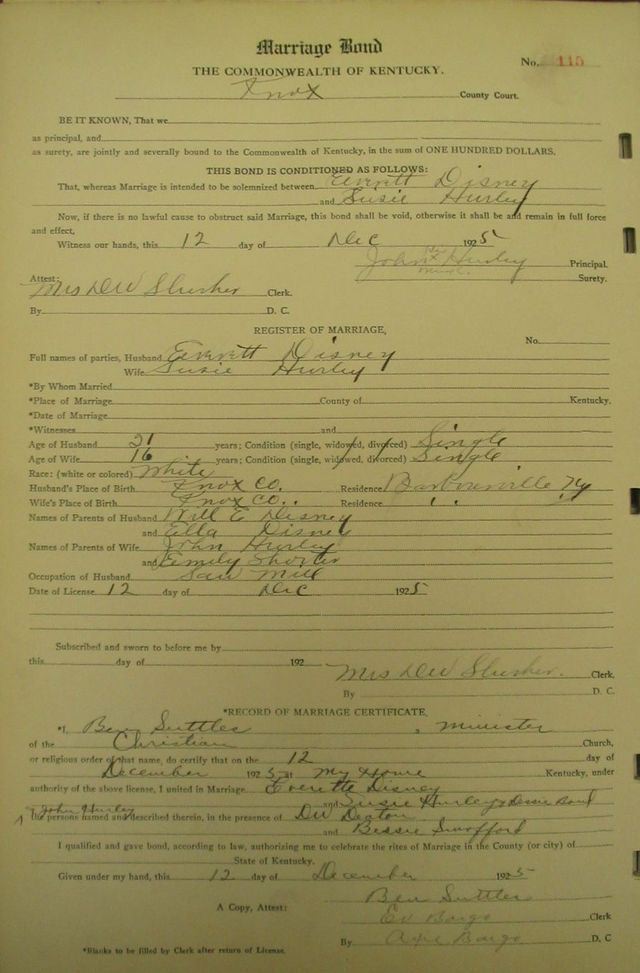 Marriage Bond
No. 115
THE COMMONWEALTH OF KENTUCKY.
Knox County Court.
BE IT KNOWN, That we
as principal, and
as surety, are jointly and severally bound to the Commonwealth of Kentucky, in the sum of ONE HUNDRED DOLLARS.
THIS BOND IS CONDITIONED AS FOLLOWS:
That, whereas Marriage is intended to be solemnized between Everett Disney
and Susie Hurley
Now, if there is no lawful cause to obstruct said Marriage, this bond shall be void, otherwise it shall be and remain in full force
and effect,
Witness our hands, this 12 day of Dec 1925
John Hurley Principal.
Attest: Surety.
Mrs DW Slusher Clerk.
By D. C.
REGISTER OF MARRIAGE,
No.
Full names of parties, Husband Everett Disney
Wife Susie Hurley
*By Whom Married
*Place of Marriage County of Kentucky,
*Date of Marriage
*Witnesses and
Age of Husband 21 years; Condition (single, widowed, divorced) Single
Age of Wife 16 years; Condition (single, widowed, divorced) Single
Race: (white or colored) White
Husband's Place of Birth Knox Co. Residence Barbourville Ky
Wife's Place of Birth Knox Co. Residence " "
Names of Parents of Husband Will E Disney
and Ella Disney
Names of Parents of Wife John Hurley
and Emily
Occupation of Husband Saw Mill
Date of License 12 day of Dec 1925
Subscribed and sworn to before me by
this day of 192
Mrs DW Slusher. Clerk,
By D. C.
*RECORD OF MARRIAGE CERTIFICATE,
*I, Ben Suttles, Minister
of the Christian Church,
or religious order of that name, do certify that on the 12 day of
December 1925 at My Home Kentucky, under
authority of the above license, I united in Marriage Everette Disney
and Susie Hurley & Dessie Bond
& John Hurley
the persons named and described therein, in the presence of DW Deaton
and Bessie Swafford
I qualified and gave bond, according to law, authorizing me to celebrate the rites of Marriage in the County (or city) of
State of Kentucky.
Given under my hand, this 12 day of December 1925
Ben Suttles
A Copy, Attest: Ed Bargo Clerk
By Bargo D. C
*Blanks to be filled by Clerk after return of License.